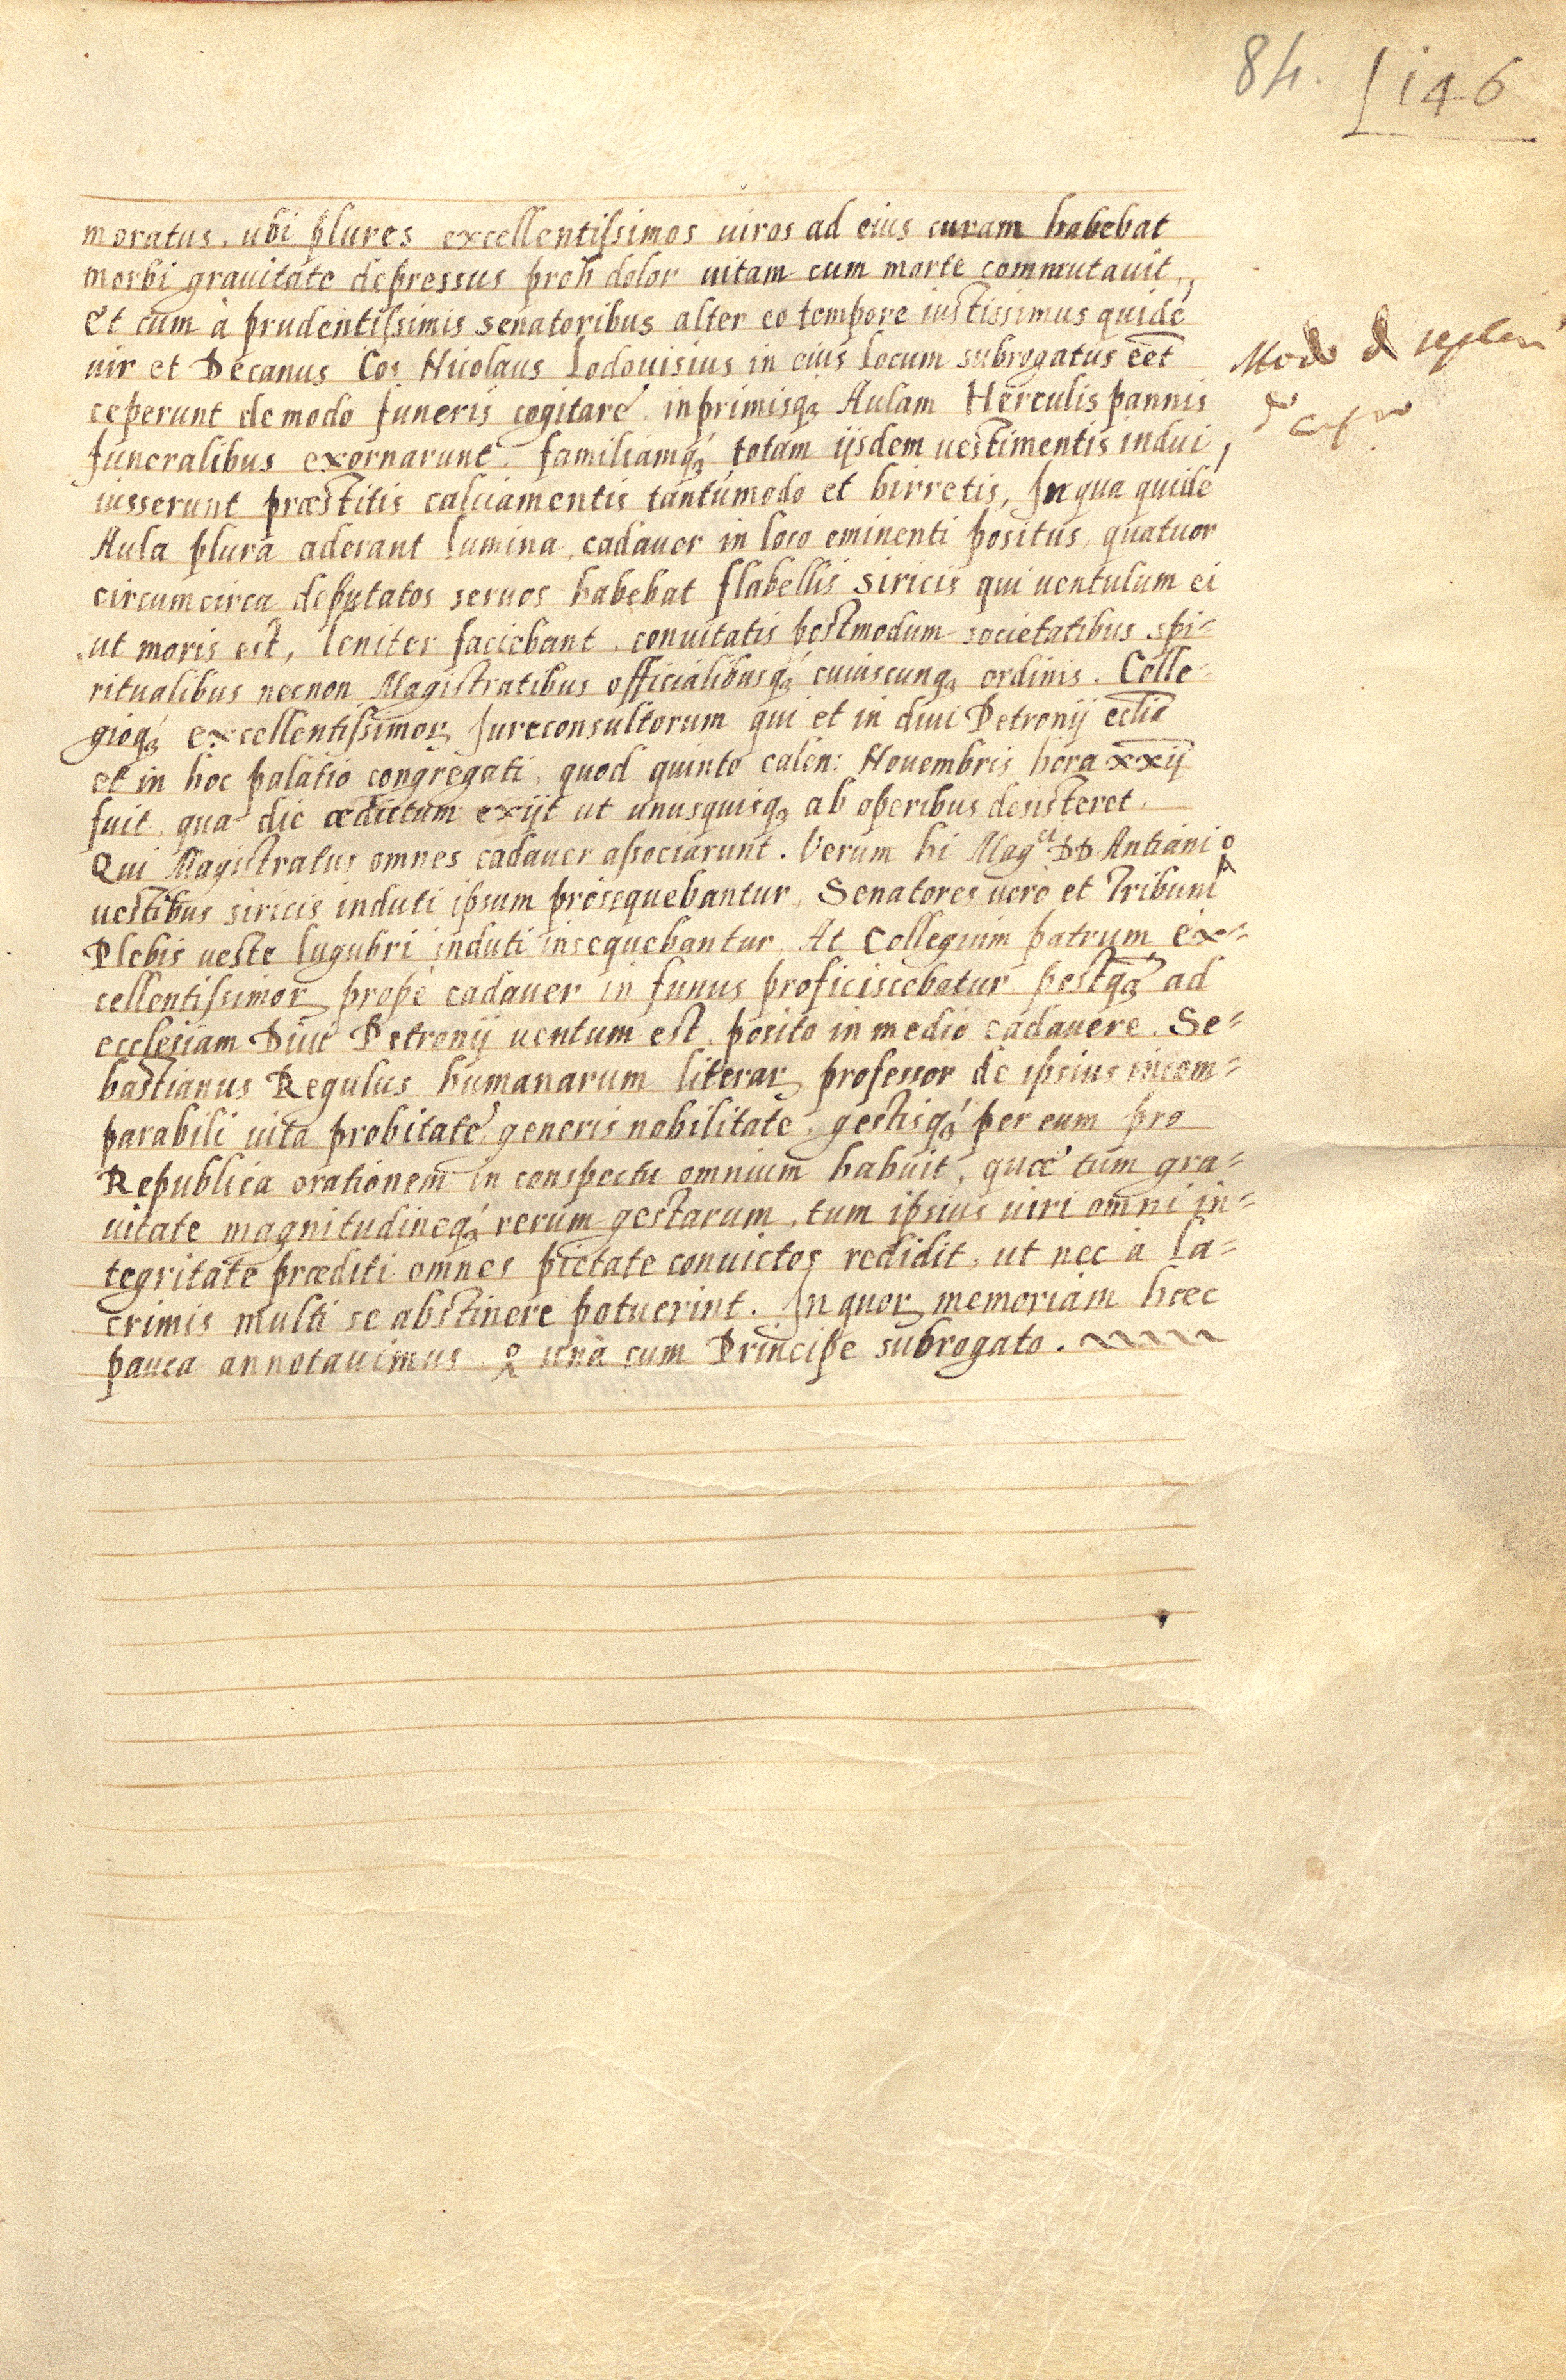 84. 146
moratus, ubi plures excellentissimos uiros ad eius curam habebat
morbi grauitate depressus proh dolor uitam cum morte commutauit,
Et cum à prudentissimis senatoribus alter eo tempore iustissimus quidē
uir et Decanus Co: Nicolaus Lodouisius in eius locum subrogatus eēt
Modo
ceperunt de modo funeris cogitare inprimisq; Aulam Herculis pannis
funeralibus exornarunt familiamq; totam ijsdem uestimentis indui,
iusserunt præstitis calciamentis tantumodo et birretis, In qua quidē
Aula plura aderant lumina, cadauer in loco eminenti positus, quatuor
circumcirca deputatos seruos habebat flabellis siricis qui uentulum ei
ut moris est, leniter faciebant, conuitatis postmodum societatibus spi=
ritualibus necnon Magistratibus officialibusq; cuiuscunq; ordinis. Colle=
gioq; excellentissimoꝝ Jureconsultorum qui et in diui Petronij ecl̄ia
et in hoc palatio congregati, quod quinto calen: Nouembris hora xxij
fuit, qua die ædictum exijt ut unusquisq; ab operibus desisteret.
Qui Magistratus omnes cadauer associarunt. Verum hi Mag.ci DD. Antiani
uestibus siricis induti ipsum prosequebantur, Senatores uerò et Tribuni
Plebis ueste lugubri induti insequebantur, At Collegium patrum ex=
cellentissimoꝝ propè cadauer in funus proficiscebatur postq; ad
ecclesiam Diui Petronij uentum est, posito in medio cadauere. Se=
bastianus Regulus humanarum literaꝝ professor de ipsius incom=
parabili uita probitate, generis nobilitate, gestisq; per eum pro
Republica orationem in conspectu omnium habuit, quæ tum gra=
uitate magnitudineq; rerum gestarum, tum ipsius uiri omni in=
tegritate præditi omnes pietate conuictos redidit, ut nec à la=
crimis multi se abstinere potuerint. In quoꝝ memoriam hæc
pauca annotauimus unà cum Principe subrogato.